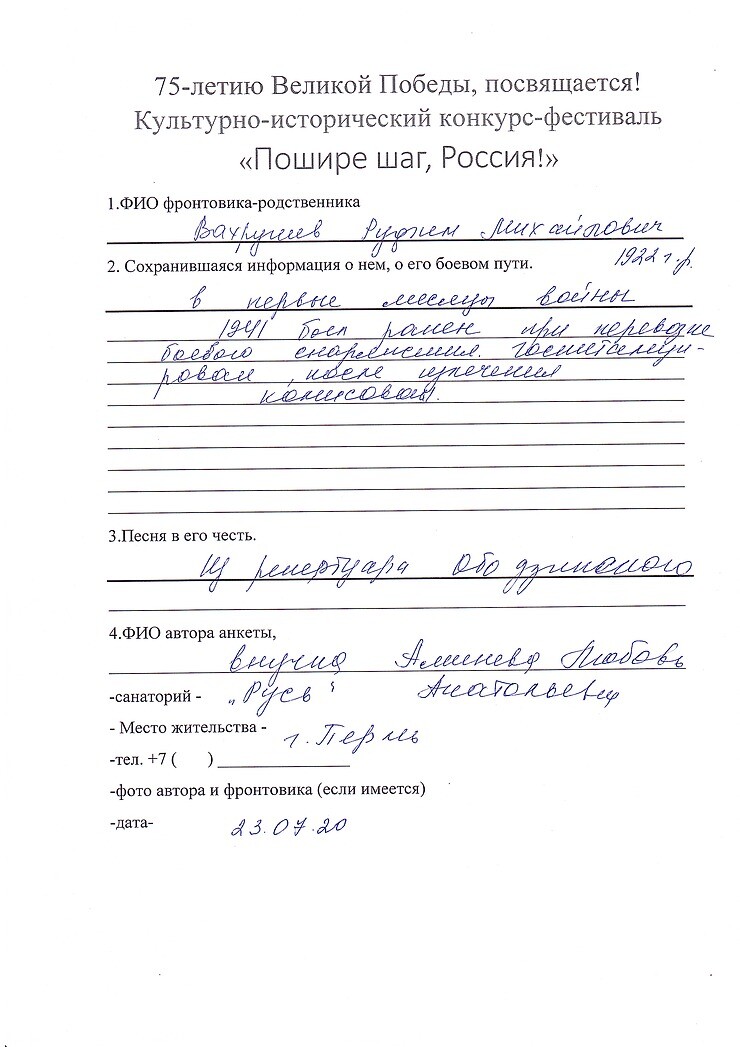 75-летию Великой Победы, посвящается!
Культурно-исторический конкурс-фестиваль
«Пошире шаг, Россия!»
1.ФИО фронтовика-родственника
Вахрушев Руфим Михайлович
2. Сохранившаяся информация о нем, о его боевом пути. 1922 г.р.
в первые месяцы войны
1941 был ранен при перевозке
боевого снаряжения. Госпитализи-
рован, после излечения
комисован.
3.Песня в его честь.
Из репертуара Ободзинского
4.ФИО автора анкеты,
внучка Аминева Любовь
-санаторий - „Русь" Анатольевна
- Место жительства - г. Пермь
-тел. +7 ( ) ________________
-фото автора и фронтовика (если имеется)
-дата- 23.07.20